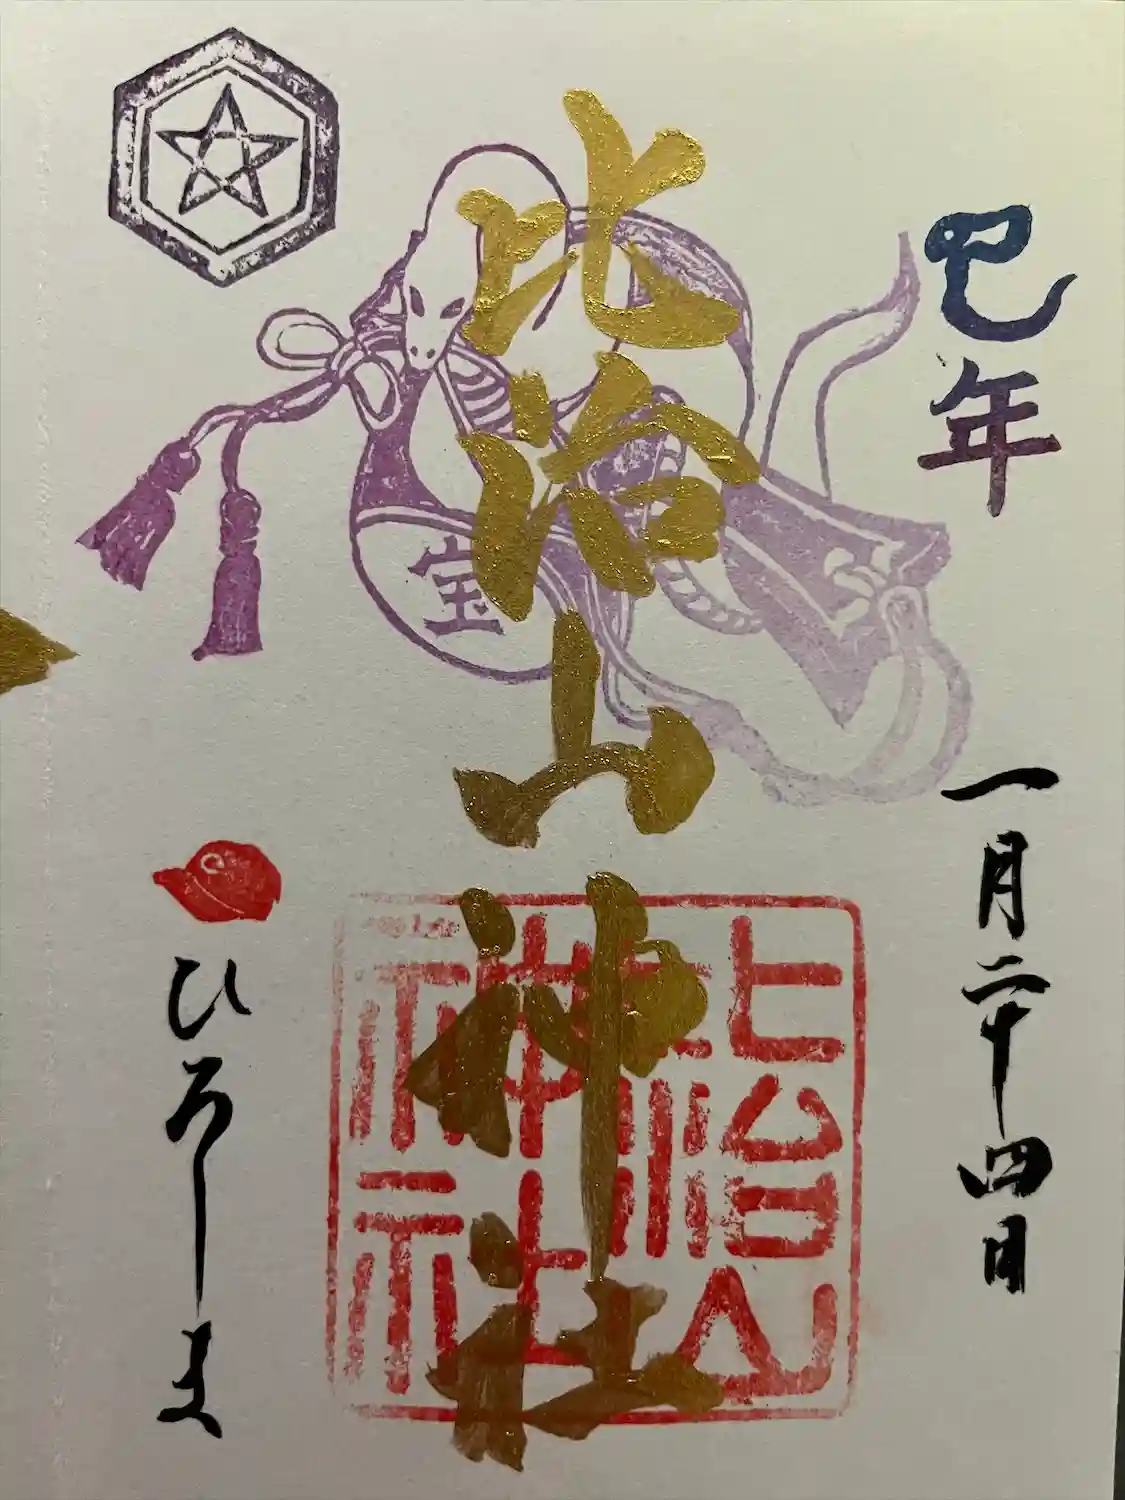 巳年
一月二十四日
宝
比治山神社
比治山神社
ひろしま